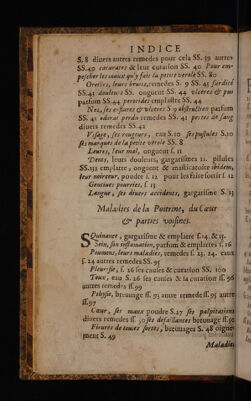 INDICE
S.8 divers autres remedes pour cela SS.39 autres
SS.40 catarates & leur curaison SS.40 Pour em-
pescher les maux qu'y fait la petite verole SS.80
Oreilles, leurs bruits, remedes S.9 SS.45 surdité
SS.45 douleurs SS. onguent SS.44 ulceres & pus
parfum SS.44 parotides emplastre SS.44
Nez, ses ulceres & ulcères S.9 obstruction parfum
SS.41 odorat perdu remedes SS.41 pertes de sang
divers remedes SS.42
Visage, ses rougeurs, eau S.10 ses pustules S.10
ses marques de la petite verole SS.8
Leures, leur mal, onguent S.11
Dents, leurs douleurs, gargarismes 11. pilules
SS.133 emplatre, onguent & masticatoire ibidem,
leur noirceur, poudre S.12 pour les faire sortir S.12
Gencives pourries, S.13
Langue, ses divers accidents, gargarisme S.13
Maladies de la Poitrine, du Cœur
& parties voisines.
SQuinance, gargarisme & emplatre S.14. & 15.
Sein, son inflamation, parfum & emplastres S.16
Poumons, leurs maladies, remedes S.23. 24. eaux
S.24 autres remedes SS.95
Pleuresie, S.26 ses causes & curaison SS.100
Toux, eau S.26 ses causes & la curaison SS.96
autres remedes SS.99
Phtysie, breuvage SS.95 autre remede SS.95 autre
SS.97
Cœur, ses maux poudre S.27 ses palpitations
divers remedes SS.50 ses defaillances breuvage SS.
Fievres de toutes sortes, breuvages S.48 oigne-
ment S.49
Maladies